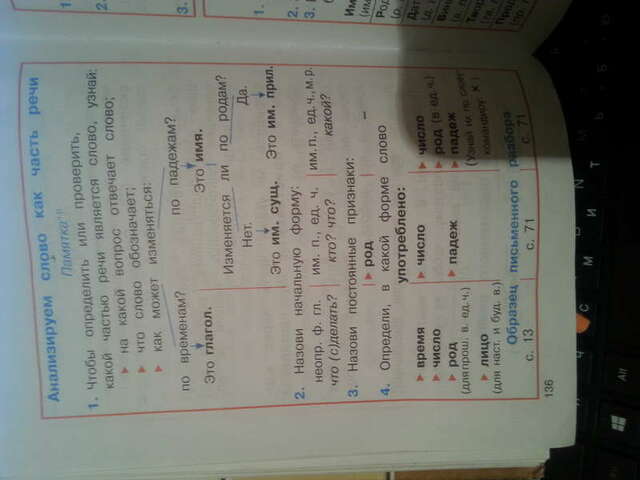 Анализируем слово как часть речи
Памятка
1. Чтобы определить или проверить,
какой частью речи является слово, узнай:
на какой вопрос отвечает слово;
что слово обозначает;
как может изменяться:
по временам? по падежам?
Это глагол. Это имя.
Изменяется ли по родам?
Нет. Да.
Это им. сущ. Это им. прил.
2. Назови начальную форму:
неопр. ф. гл. им. п., ед. ч. им. п., ед. ч., м. р.
что (с)делать? кто? что? какой?
3. Назови постоянные признаки:
род –
4. Определи, в какой форме слово
употреблено:
время число число
число падеж род (в ед. ч.)
род падеж
(для прош. в. ед. ч.) (Узнай их по сущ.
лицо командиру
(для наст. и буд. в.)
Образец письменного разбора
с. 13 с. 71 с. 71
136
Alt